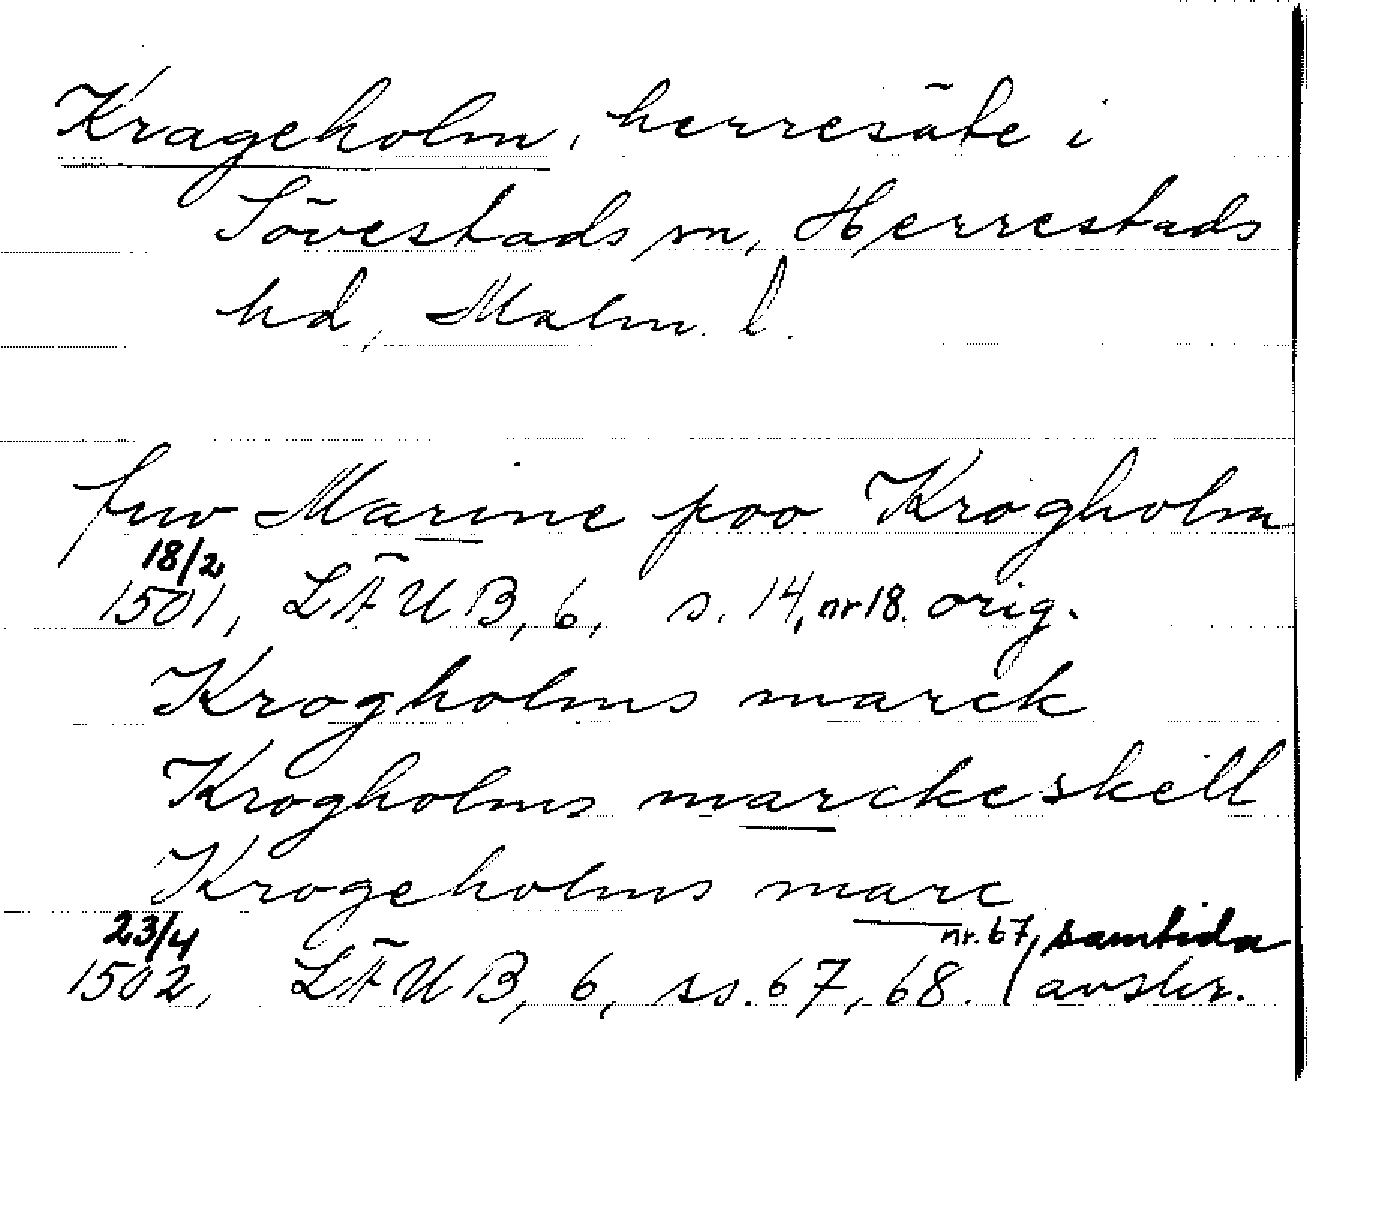 Krageholm, herresäte i
Sövestads sn, Herrestads
hd, Malm. l.
fru Marine poo Krogholm
18/2
1501, LÄUB, 6, s. 14, nr 18. orig.
Krogholms marck
Krogholms marckeskell
Krogeholms marc
23/4 nr. 67, samtida
1502, LÄUB, 6, ss. 67, 68. avskr.